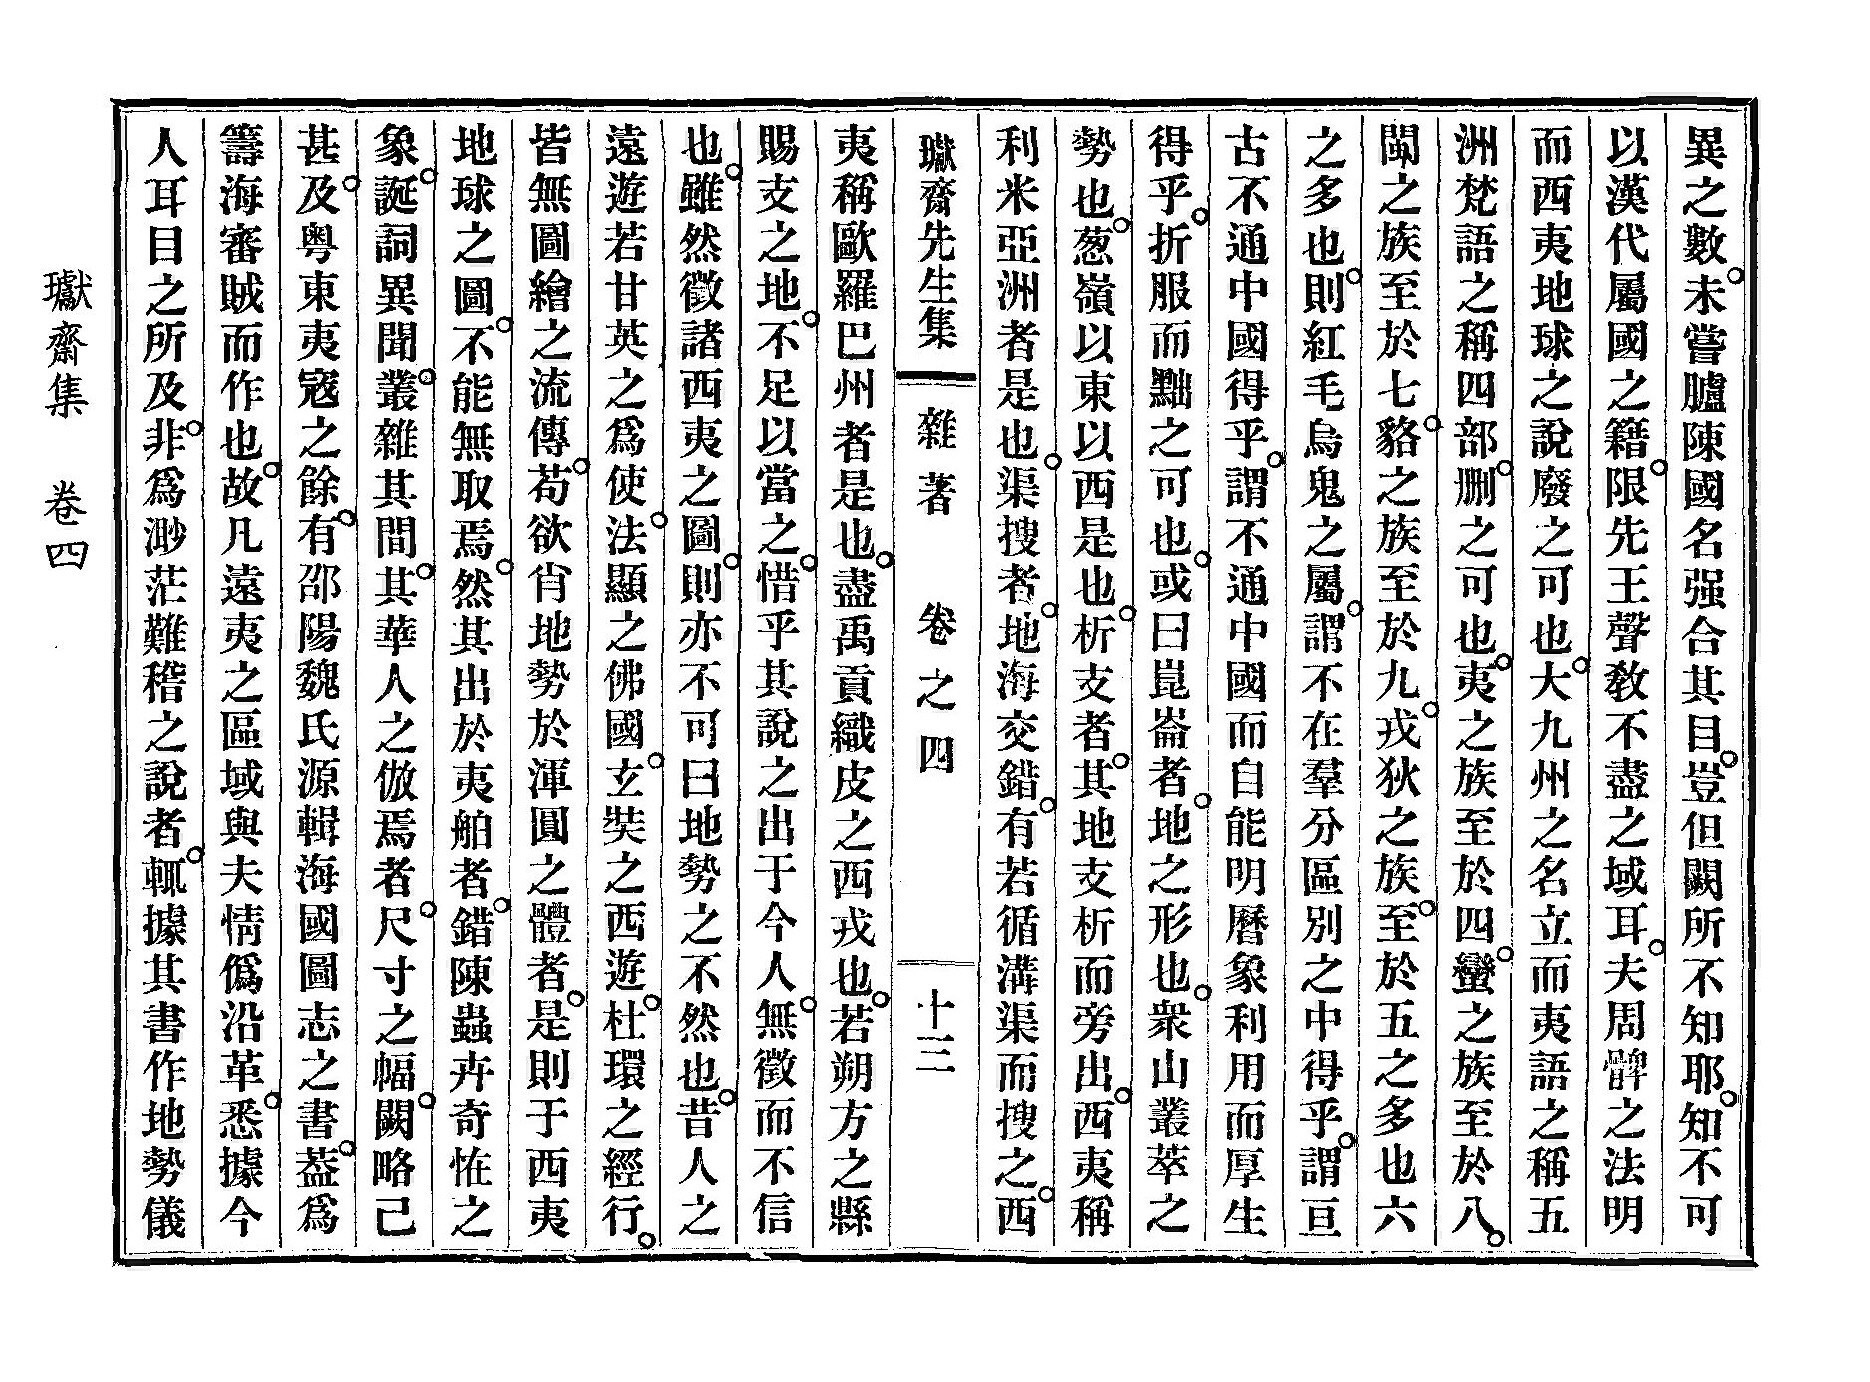 異之數。未嘗臚陳國名强合其目。豈但闕所不知耶。知不可
以漢代屬國之籍。限先王聲敎不盡之域耳。夫周髀之法明
而西夷地球之說廢之可也。大九州之名立而夷語之稱五
洲梵語之稱四部。刪之可也。夷之族至於四。蠻之族至於八。
閩之族至於七。貉之族至於九。戎狄之族。至於五之多也六
之多也。則紅毛烏鬼之屬。謂不在羣分區別之中得乎。謂亘
古不通中國得乎。謂不通中國而自能明曆象利用而厚生
得乎。折服而黜之可也。或曰崑崙者。地之形也。衆山叢萃之
勢也。葱嶺以東以西是也。析支者。其地支析而旁出。西夷稱
利米亞洲者是也。渠搜者。地海交錯。有若循溝渠而搜之。西
瓛齋先生集 雜著 卷之四 十三
夷稱歐羅巴州者是也。盡禹貢織皮之西戎也。若朔方之縣
賜支之地。不足以當之。惜乎其說之出于今人。無徵而不信
也。雖然徵諸西夷之圖。則亦不可曰地勢之不然也。昔人之
遠遊若甘英之爲使。法顯之佛國。玄奘之西遊。杜環之經行。
皆無圖繪之流傳。苟欲肖地勢於渾圓之體者。是則于西夷
地球之圖。不能無取焉。然其出於夷舶者。錯陳蟲卉奇恠之
象。誕詞異聞。叢雜其間。其華人之倣焉者。尺寸之幅。闕略已
甚。及粤東夷寇之餘。有邵陽魏氏源輯海國圖志之書。葢爲
籌海審賊而作也。故凡遠夷之區域與夫情僞沿革。悉據今
人耳目之所及。非爲渺茫難稽之說者。輒據其書作地勢儀
瓛齋集 卷四